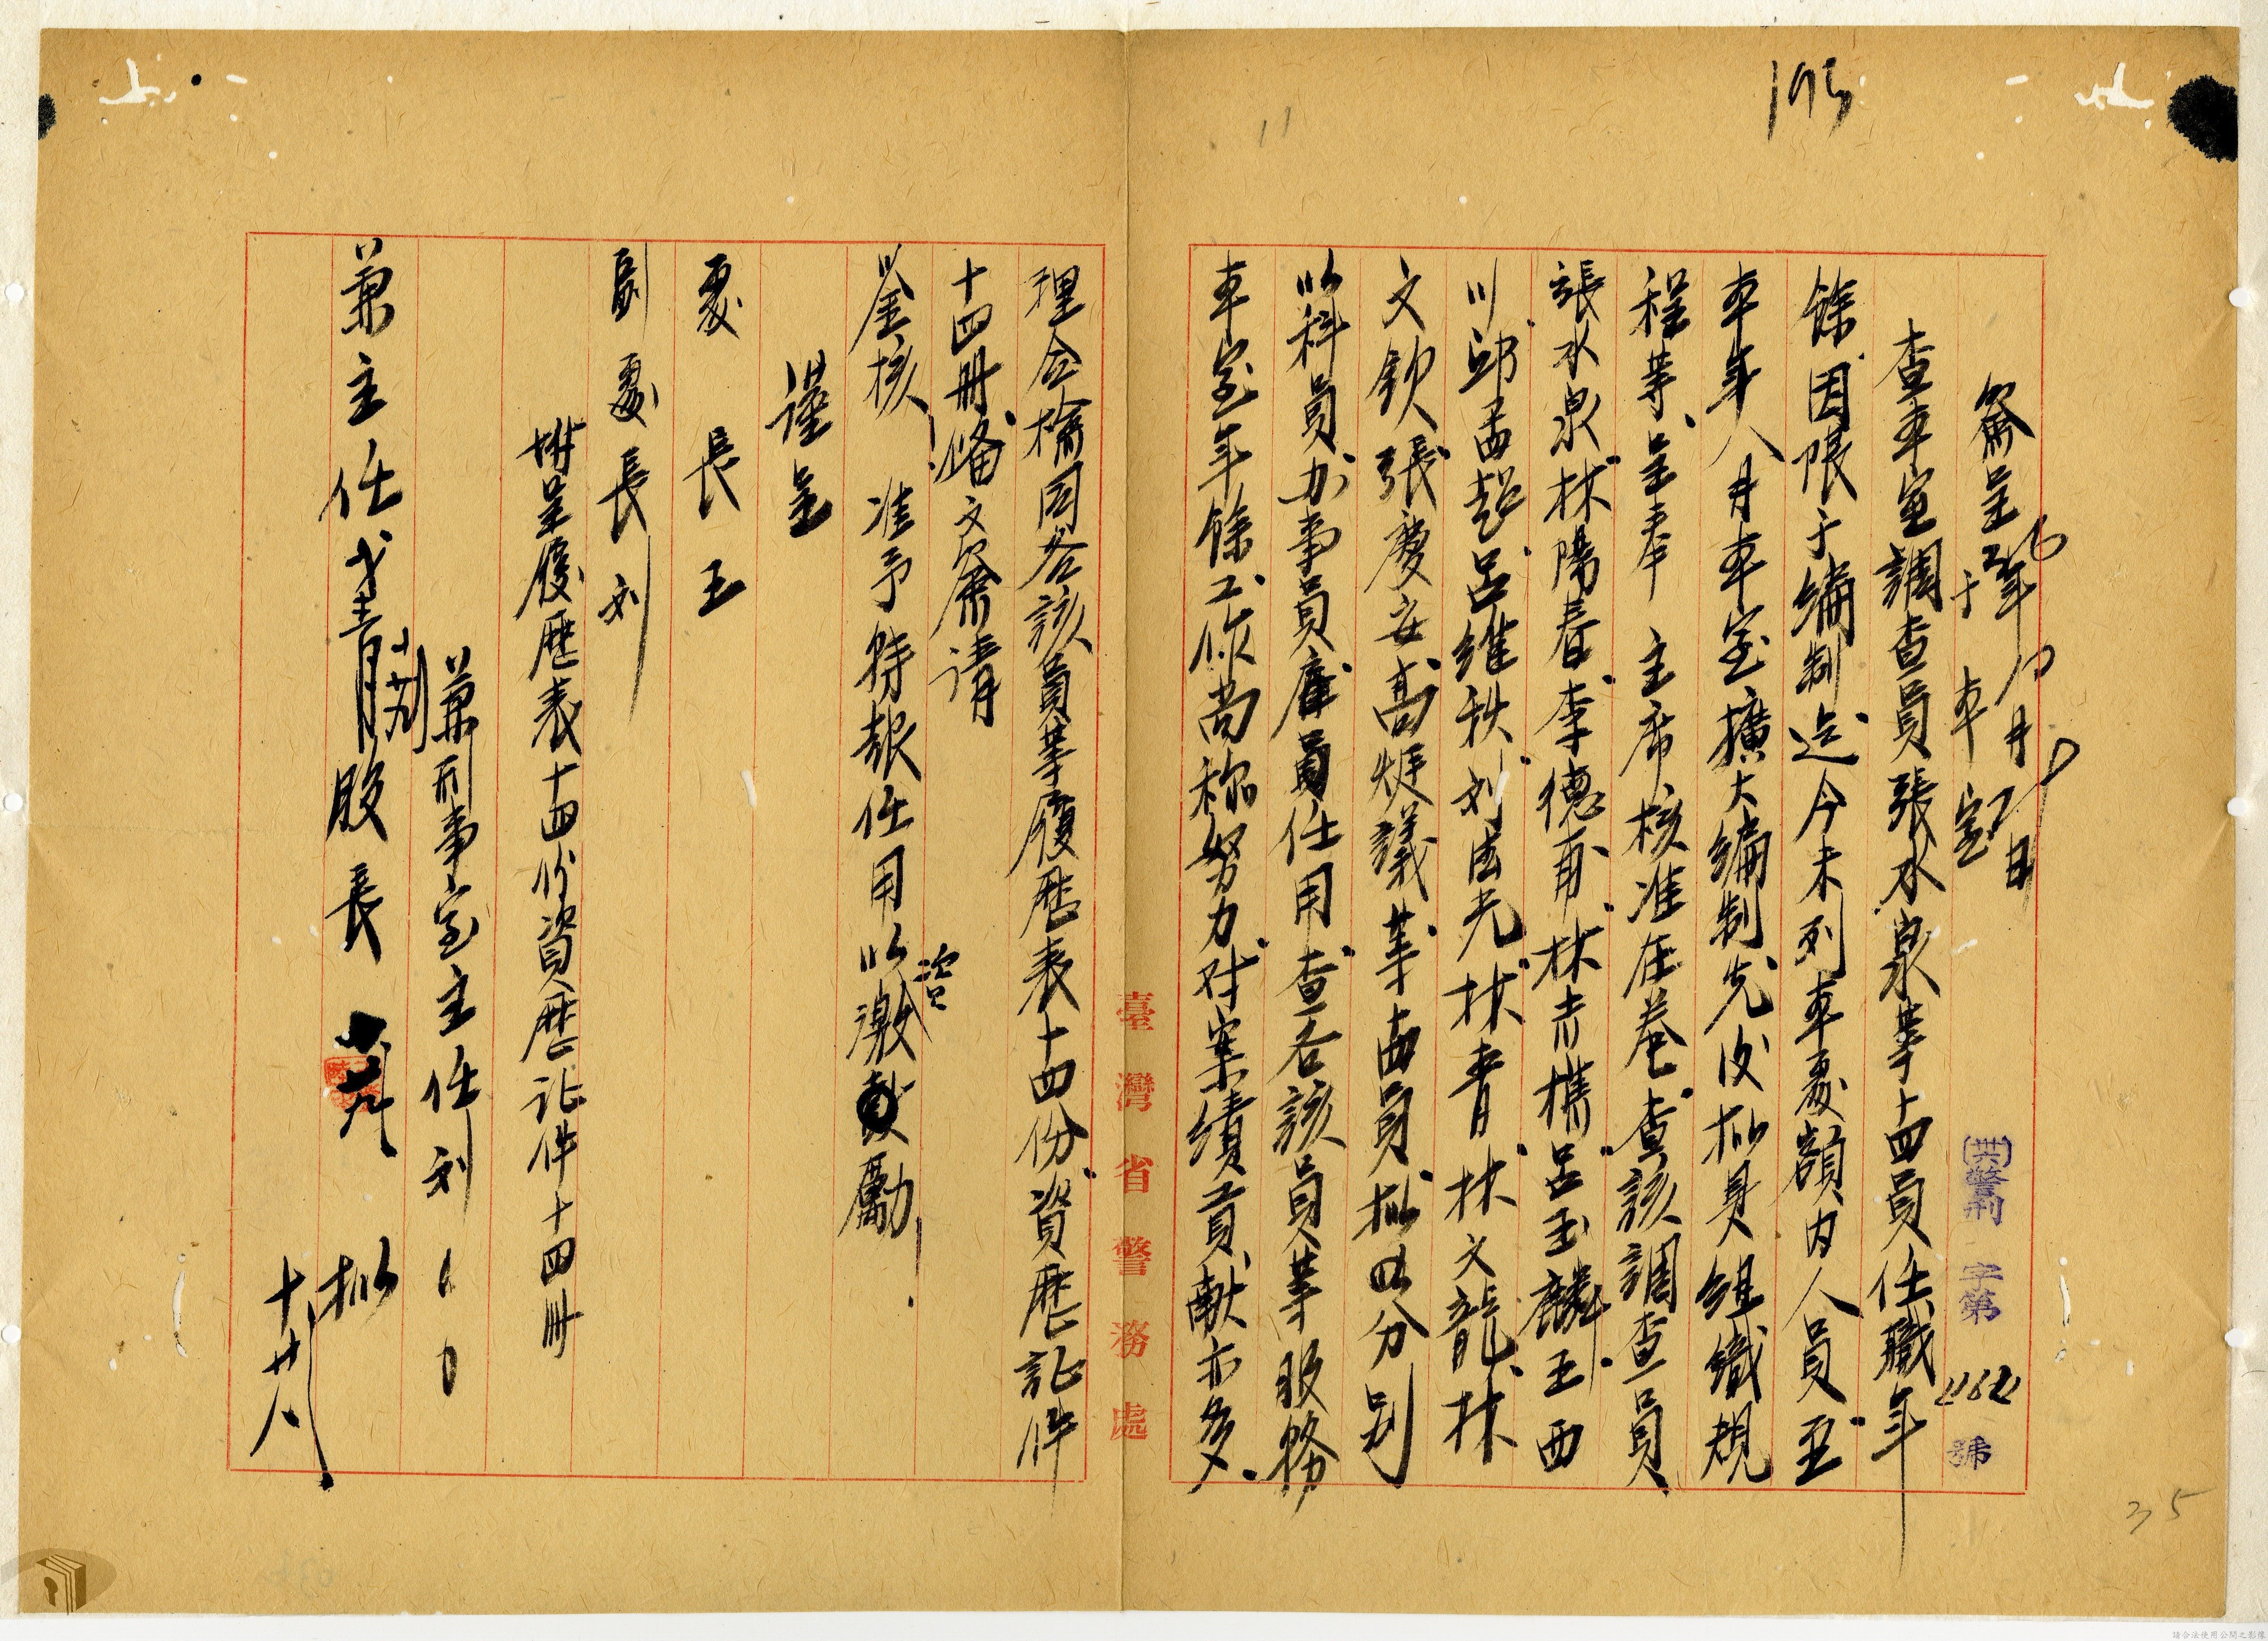 193
11
簽呈 36年10月29日
于本室
(卅六)警刑字第2162號
查本室調查員張水泉等十四員任職年
餘，因限于編制迄今未列本處額內人員，至
本年八月本室擴大編制先後擬具組織規
程等，呈奉 主席核准在卷，查該調查員
張水泉、林陽春、李德甫、林赤樵、呂玉麟、王西
川、邱孟超、呂維秩、刘法光、林青、林文龍、林
文欽、張慶安、高焜議等十四員，擬以分別
以科員办事員雇員任用，查各該員等服務
本室年餘，工作尚称努力，对案績貢献亦多，
理合檢同各該員等履歷表十四份，資歷証件
十四冊，備文簽请
鉴核 准予特報任用以資激勵
謹呈
處長 王
副處長 刘
坿呈履歷表十四份資歷証件十四冊
兼刑事室主任刘
兼主任 股長 擬
十廿八
臺灣省警務處
35
請合法使用公開之影像